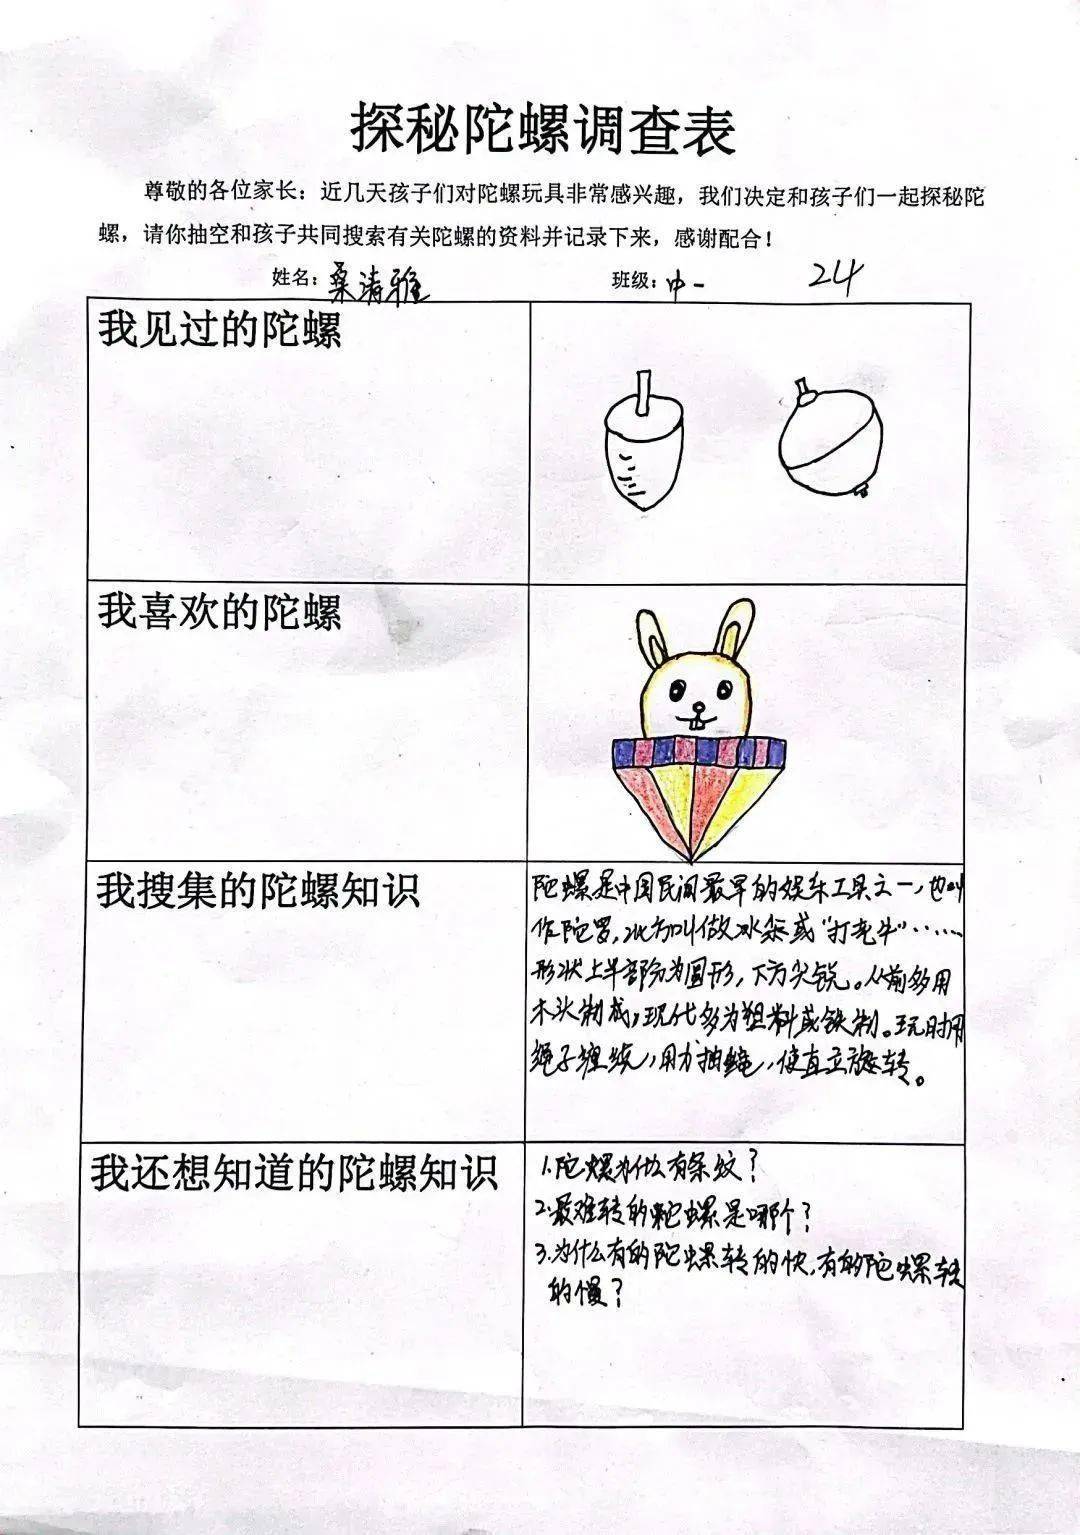 探秘陀螺调查表
尊敬的各位家长：近几天孩子们对陀螺玩具非常感兴趣，我们决定和孩子们一起探秘陀
螺，请你抽空和孩子共同搜索有关陀螺的资料并记录下来，感谢配合！
姓名：桑清雅 班级：中一 24
我见过的陀螺
我喜欢的陀螺
我搜集的陀螺知识
陀螺是中国民间最早的娱乐工具之一，也叫
作陀罗，北方叫做冰尜或“打老牛”……
形状上半部分为圆形，下方尖锐。从前多用
木头制成，现代多为塑料或铁制。玩时用
绳子缠绕，用力抽绳，使直立旋转。
我还想知道的陀螺知识
1.陀螺为什么有条纹？
2.最难转的陀螺是哪个？
3.为什么有的陀螺转的快，有的陀螺转
的慢？